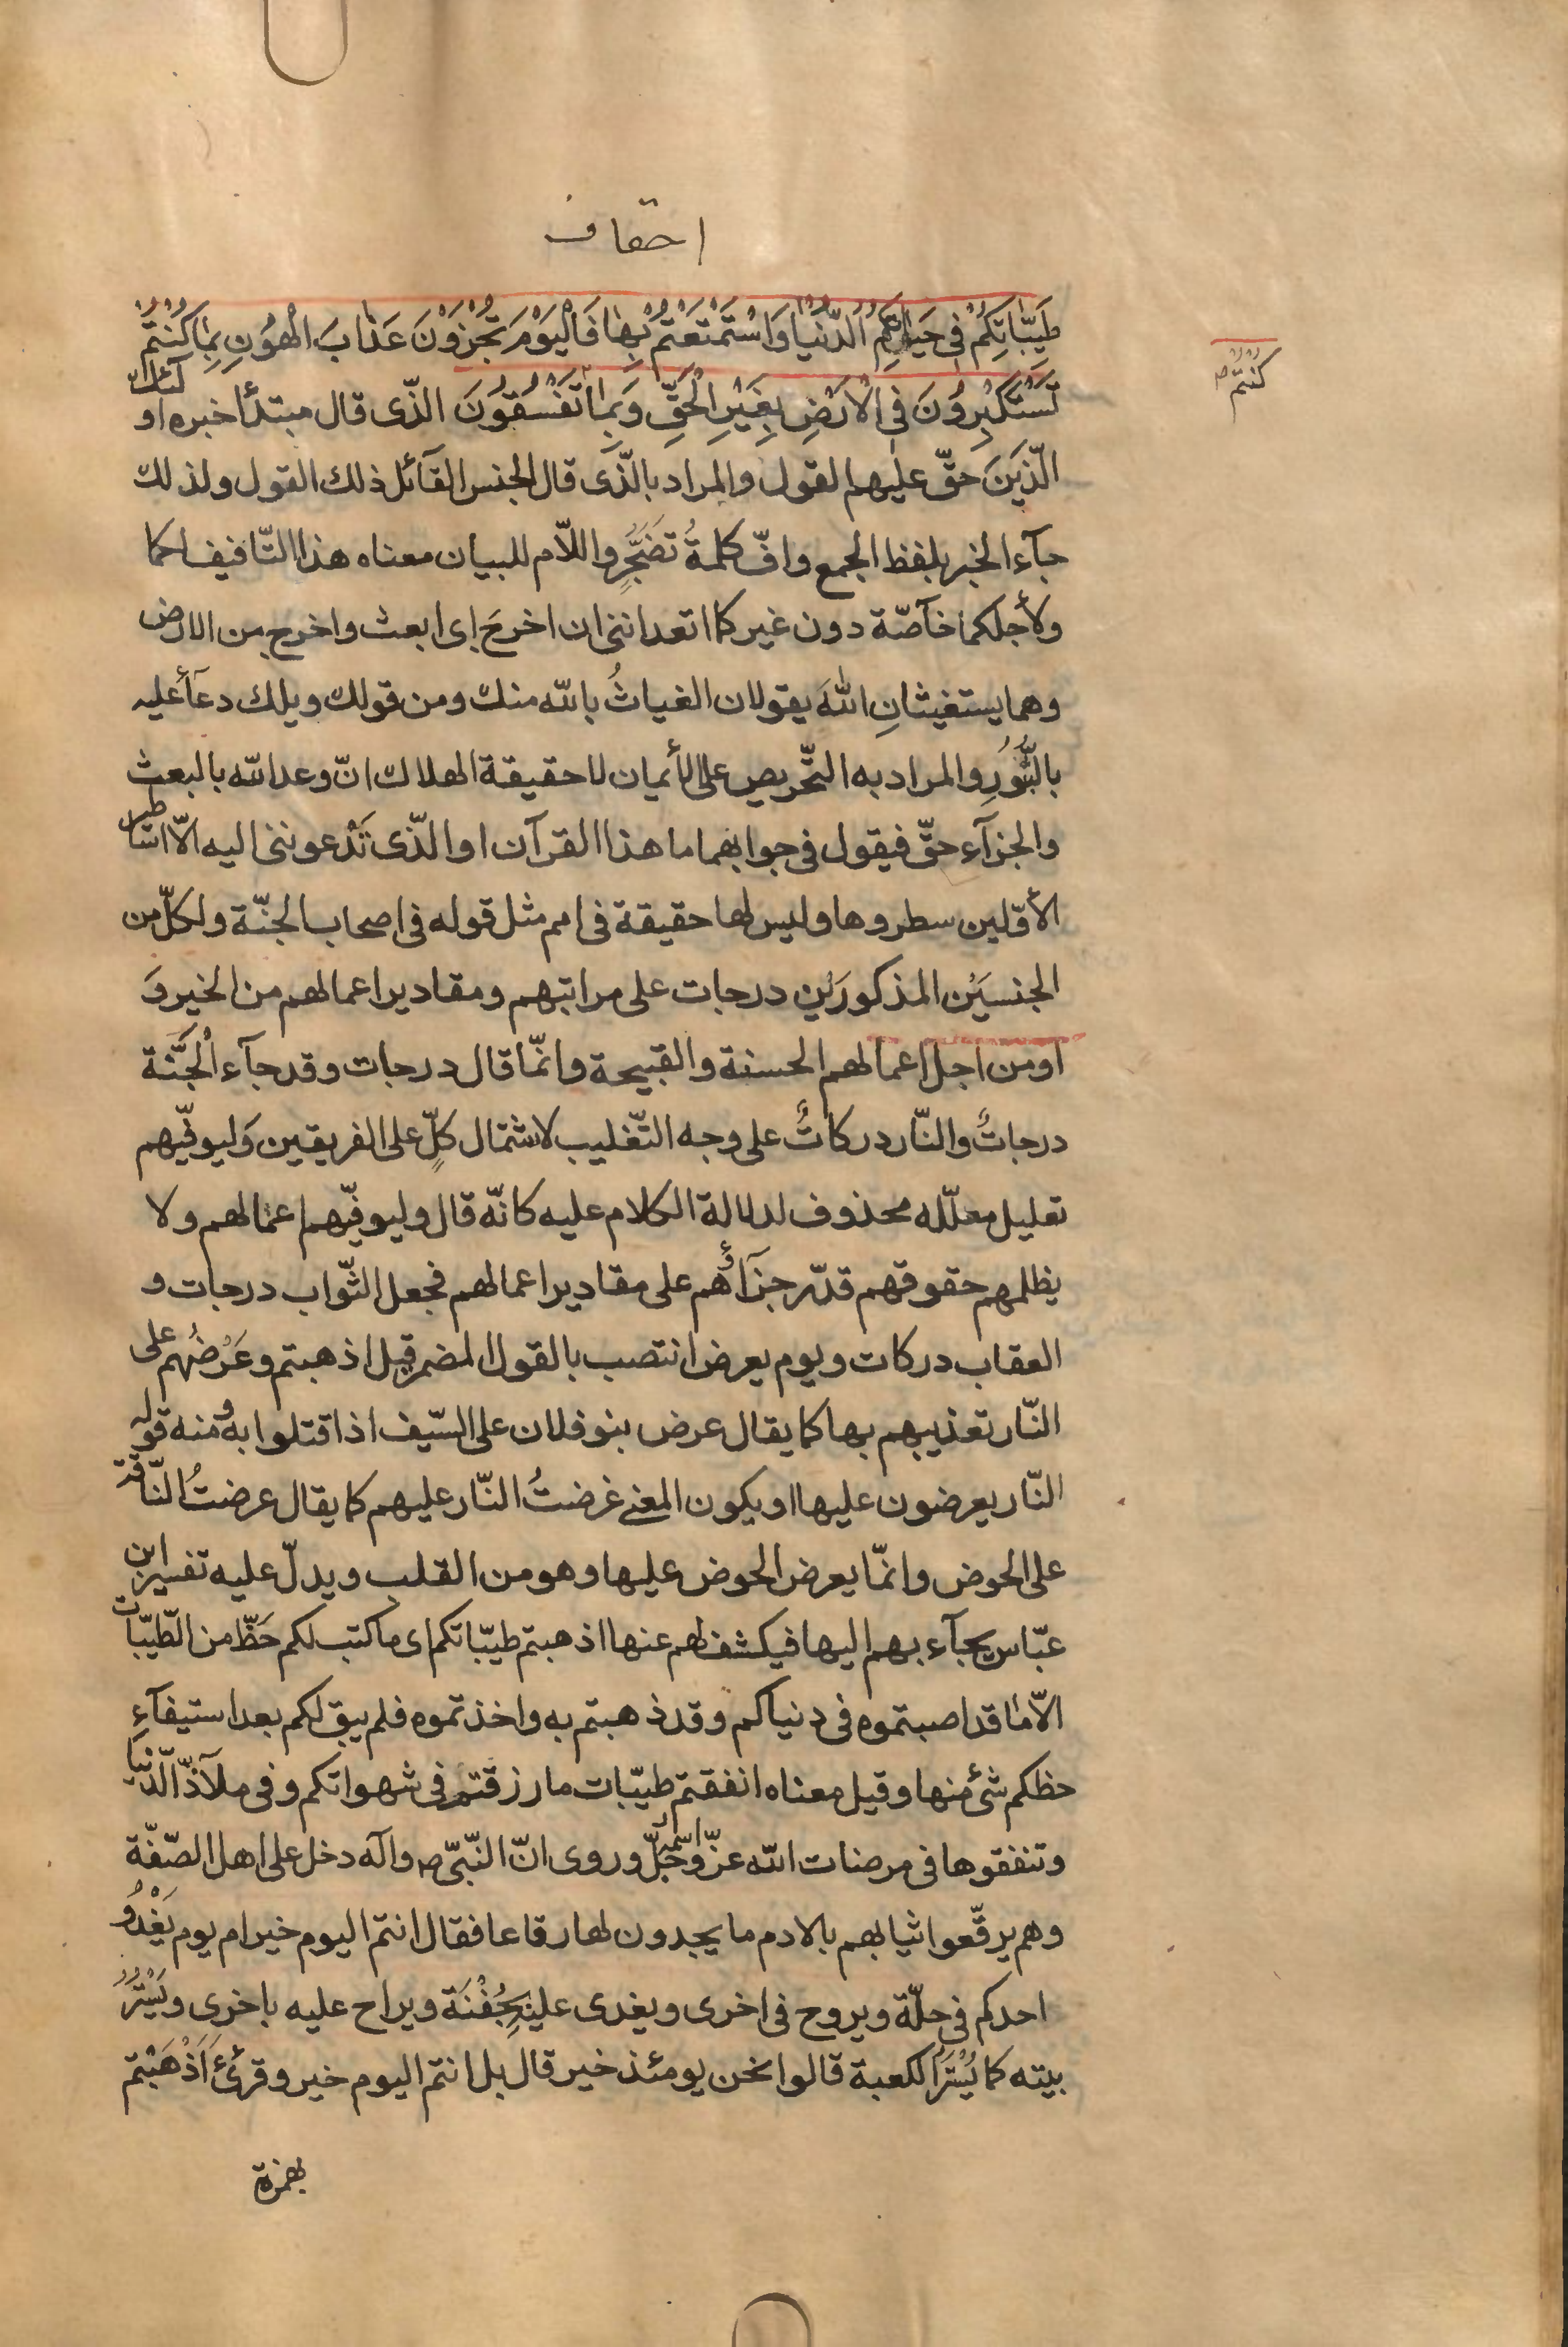 احقاف
طَيِّبَاتِكُمْ فِي حَيَاتِكُمُ الدُّنْيَا وَاسْتَمْتَعْتُمْ بِهَا فَالْيَوْمَ تُجْزَوْنَ عَذَابَ الْهُونِ بِمَا كُنْتُمْ
كنتم ص
تَسْتَكْبِرُونَ فِي الْأَرْضِ بِغَيْرِ الْحَقِّ وَبِمَا تَفْسُقُونَ الّذى قال مبتدأ خبره اولٓئك
الّذينَ حقّ عليهم القول والمراد بالّذى قال الجنس القآئل ذلك القول ولذلك
جآء الخبر بلفظ الجمع وافّ كلمةُ تَضَجُّرٍ واللاّم للبيان معناه هذا التّافيف لكما
ولأجلكما خآصّة دون غيركما اتعداننى ان اخرجَ اى ابعث واخرج من الارض
وهما يستغيثانِ اللهَ يقولان الغياثُ بالله منك ومن قولك ويلك دعآءٌ عليه
بالثُّبُورِ والمراد به التّحريص على الأيمان لا حقيقة الهلاك انّ وعد الله بالبعث
والجزآء حقّ فيقول فى جوابهما ما هذا القرآن او الّذى تَدْعوننى اليه الاّ اساطير
الأوّلين سطروها وليس لها حقيقة فى امم مثل قوله فى اصحاب الجنّة ولكلّ من
الجنسَيْن المذكورَيْنِ درجات على مراتبهم ومقادير اعمالهم من الخير وَ
او من اجل اعمالهم الحسنة والقبيحة وانّما قال درجات وقد جآء الْجَنَّة
درجاتٌ والنّار دركاتٌ على وجه التّغليب لاشتمال كلٍّ على الفريقين وَليوفّيهم
تعليل معلّله محذوف لدلالة الكلام عليه كانّه قال وليوفّيهم اعمالهم ولا
يظلمهم حقوقهم قدّر جزآءَهم على مقادير اعمالهم فجعل الثّواب درجات و
العقاب دركات ويوم يعرض انتصب بالقول المضمر قبل اذهبتم وعَرْضُهم على
النّار تعذيبهم بها كما يقال عرض بنو فلان على السّيف اذا قتلوا به ومنه قوله
النّار يعرضون عليها او يكون المعنى عرضتُ النّار عليهم كما يقال عرضتُ النّاقة
على الحوض وانّما يعرض الحوض عليها وهو من القلب ويدلّ عليه تفسير ابن
عبّاس يجآء بهم اليها فيكشف لهم عنها اذهبتم طيّباتكم اى ما كتب لكم حَظّ من الطّيّبات
الاّ ما قد اصبتموه فى دنياكم وقد ذهبتم به واخذتموه فلم يبق لكم بعد استيفآءِ
حظكم شئ منها وقيل معناه انفقتم طيّبات ما رزقتم فى شهواتكم وفى ملآذّ الدّنيا
وتنفقوها فى مرضات الله عزّ اسمه وجلّ وروى انّ النّبىّ ص وآله دخل على اهل الصّفّة
وهم يرقّعوا ثيابهم بالادم ما يجدون لها رقاعا فقال انتم اليوم خير ام يوم يَغْدُو
احدكم فى حلّة ويروح فى اخرى ويغدى عليْهِ بِجُفْنَة ويراح عليه باخرى ويَسْتُرُ
بيته كما يُسْتَرُ الكعبة قالوا نحن يومئذ خير قال بل انتم اليوم خير وقرئ ءَاَذْهَبْتم
بهمزة